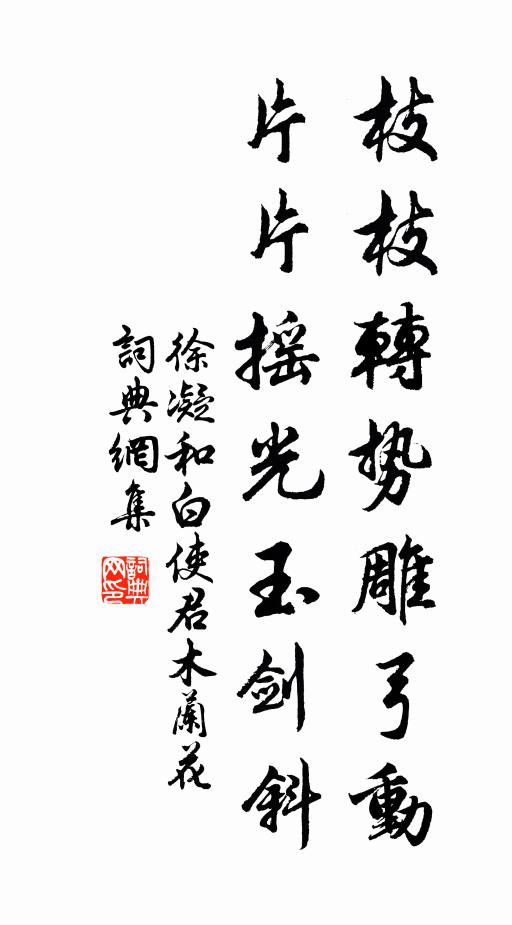 枝枝轉势雕弓動
片片摇光玉剑斜
徐凝和白使君木蘭花
詞典網集
詞典网印